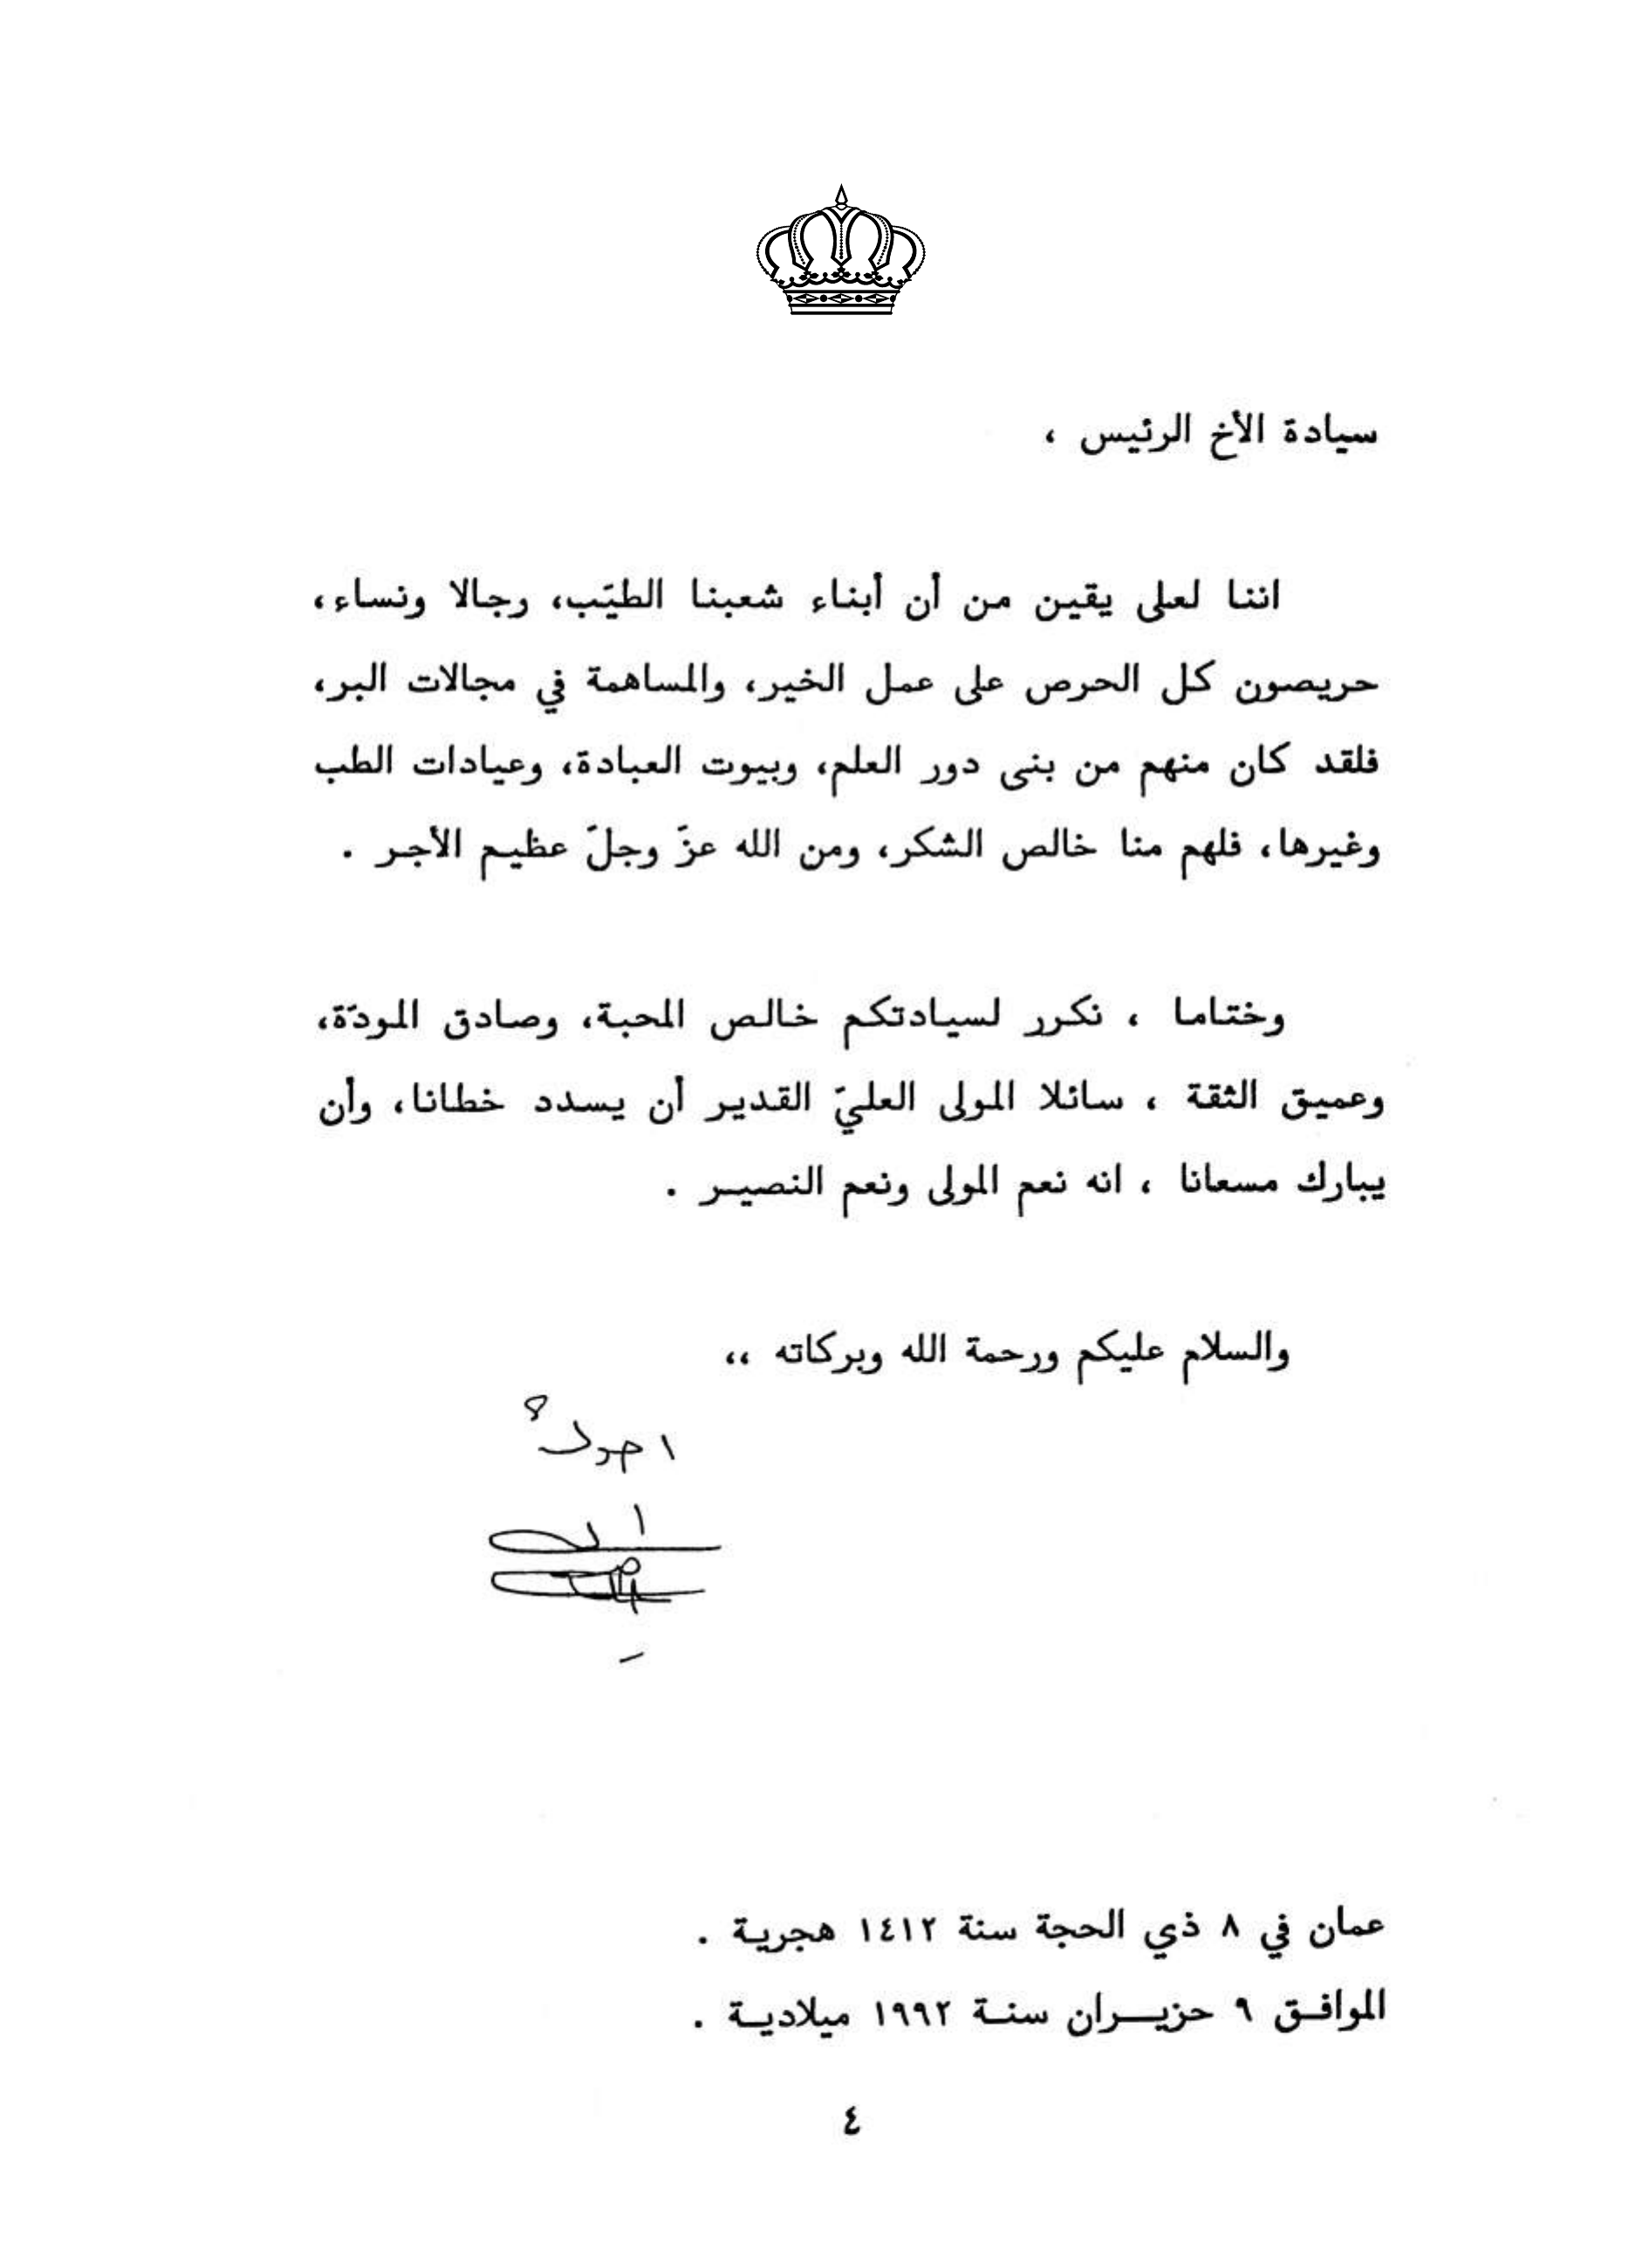 سيادة الأخ الرئيس ،
اننا لعلى يقين من أن أبناء شعبنا الطيّب، رجالا ونساء،
حريصون كل الحرص على عمل الخير، والمساهمة في مجالات البر،
فلقد كان منهم من بنى دور العلم، وبيوت العبادة، وعيادات الطب
وغيرها، فلهم منا خالص الشكر، ومن الله عزّ وجلّ عظيم الأجر .
وختاما ، نكرر لسيادتكم خالص المحبة، وصادق المودّة،
وعميق الثقة ، سائلا المولى العليّ القدير أن يسدد خطانا، وأن
يبارك مسعانا ، انه نعم المولى ونعم النصير .
والسلام عليكم ورحمة الله وبركاته ،،
عمان في ٨ ذي الحجة سنة ١٤١٢ هجرية .
الموافق ٩ حزيران سنة ١٩٩٢ ميلادية .
٤